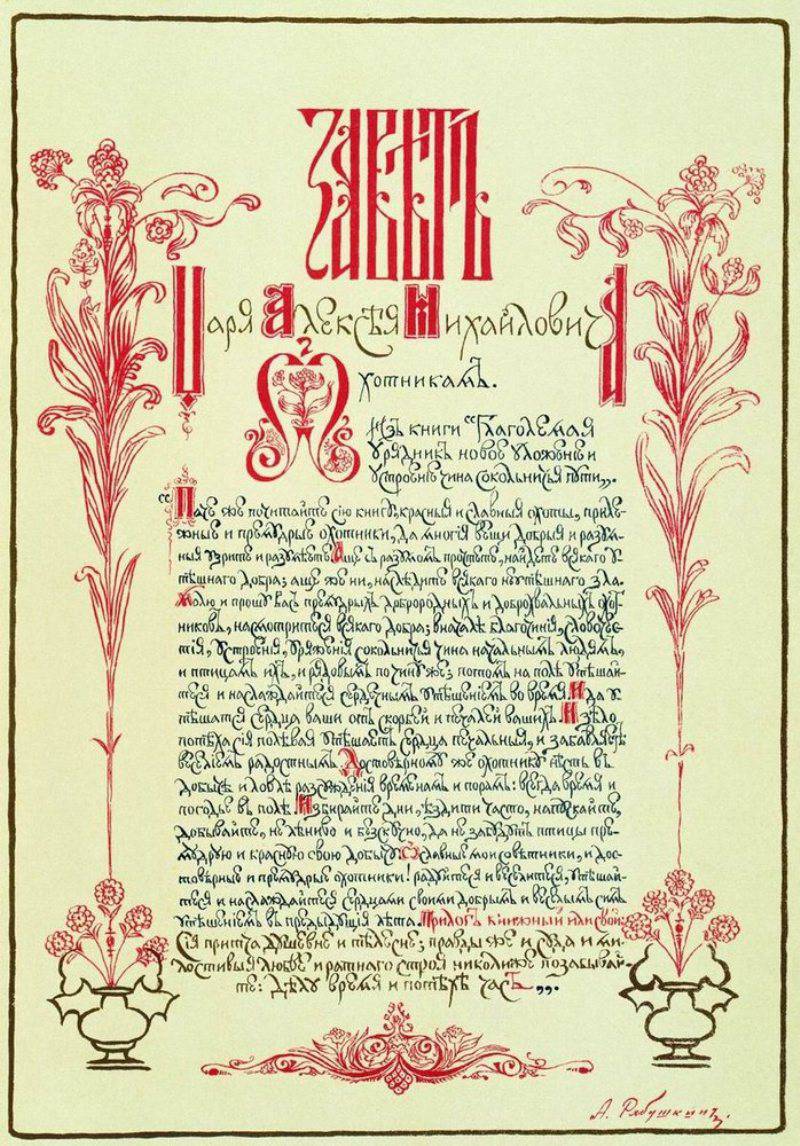 Завѣтъ
Царя Алексѣя Михайловича
Охотникамъ.
Изъ книги “Глаголемая
Урядникъ новое уложенiе и
устроенiе чина сокольничья пути„.
“Паче же почитайте сiю книгу, красныя и славныя охоты, приле-
жные и премудрые охотники, да многiя вещи добрыя и разум-
ныя узрите и разумѣете. Аще съ разумомъ прочтете, найдете всякаго у-
тѣшнаго добра; аще же ни, наслѣдите всякаго неутѣшнаго зла.
Молю и прошу васъ премудрыхъ доброродныхъ и доброхвальныхъ охот-
никовъ, насмотритеся всякаго добра; вначалѣ благочинiя, славочес-
тiя, устроенiя, уряженiя сокольничья чина начальнымъ людямъ,
и птицамъ ихъ, и рядовымъ по чину же; потомъ на полѣ утѣшай-
теся и наслаждайтеся сердечнымъ утѣшенiемъ во время. И да у-
тѣшатся сердца ваши отъ скорбей и печалей вашихъ. И зѣло
потѣха сiя полевая утѣшаетъ сердца печальныя, и забавляетъ
веселiемъ радостнымъ. Достовѣрному же охотнику нѣсть въ
добычѣ и ловлѣ разсужденiя временамъ и порамъ: всегда время и
погодье въ полѣ. Избирайте дни, ѣздите часто, напускайте,
добывайте, не лѣниво и безскучно, да не забудутъ птицы пре-
мудрую и красную свою добычу. О, славные мои совѣтники, и дос-
товѣрные и премудрые охотники! радуйтеся и веселитеся, утѣшай-
теся и наслаждайтеся сердцами своими добрымъ и веселымъ симъ
утѣшенiемъ въ предыдущiя лѣта. Прилогъ книжный или свой:
Ся притча душевне и тѣлесне; правды же и суда и ми-
лостивыя любве и ратнаго строя николиже позабывай-
те: дѣлу время и потѣхѣ часъ„.
А. Рябушкинъ.